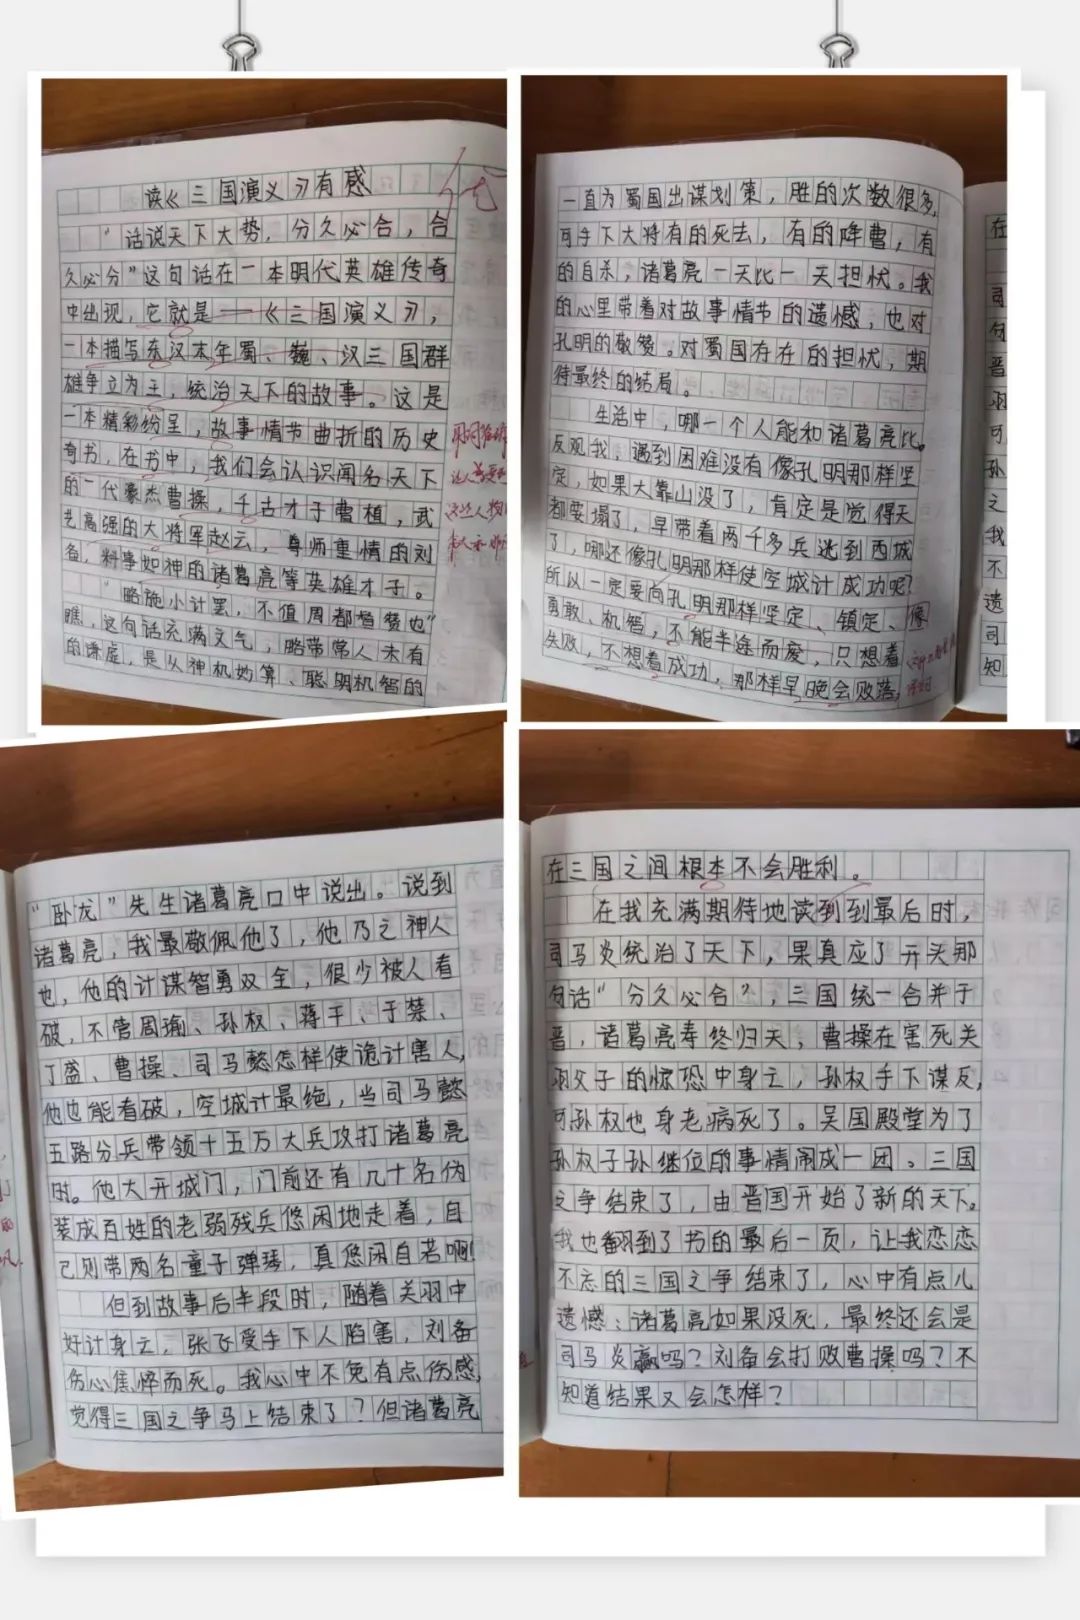 读《三国演义》有感
优
“话说天下大势，分久必合，合
久必分”这句话在一本明代英雄传奇
中出现，它就是——《三国演义》，
一本描写东汉末年蜀、巍、汉三国群
雄争立为王，统治天下的故事。这是
一本精彩纷呈，故事情节曲折的历史
奇书，在书中，我们会认识闻名天下
的一代豪杰曹操，千古才子曹植，武
艺高强的大将军赵云，尊师重情的刘
备，料事如神的诸葛亮等英雄才子。
“略施小计罢，不值周都督赞也”
瞧，这句话充满文气，略带常人未有
的谦虚，是从神机妙算、聪明机智的
“卧龙”先生诸葛亮口中说出。说到
诸葛亮，我最敬佩他了，他乃之神人
也，他的计谋智勇双全，很少被人看
破，不管周瑜、孙权、蒋干、于禁、
丁盛、曹操、司马懿怎样使诡计害人，
他也能看破，空城计最绝，当司马懿
五路分兵带领十五万大兵攻打诸葛亮
时。他大开城门，门前还有几十名伪
装成百姓的老弱残兵悠闲地走着，自
己则带两名童子弹琴，真悠闲自若啊！
但到故事后半段时，随着关羽中
奸计身亡，张飞受手下人陷害，刘备
伤心焦悴而死。我心中不免有点伤感，
觉得三国之争马上结束了？但诸葛亮
一直为蜀国出谋划策，胜的次数很多，
可手下大将有的死去，有的降曹，有
的自杀，诸葛亮一天比一天担忧。我
的心里带着对故事情节的遗憾，也对
孔明的敬赞。对蜀国存在的担忧，期
待最终的结局。
生活中，哪一个人能和诸葛亮比。
反观我，遇到困难没有像孔明那样坚
定，如果大靠山没了，肯定是觉得天
都要塌了，早带着两千多兵逃到西城
了，哪还像孔明那样使空城计成功呢？
所以一定要向孔明那样坚定、镇定、
勇敢、机智，不能半途而废，只想着
失败，不想着成功，那样早晚会败落，
在三国之间根本不会胜利。
在我充满期待地读到到最后时，
司马炎统治了天下，果真应了开头那
句话“分久必合”，三国统一合并于
晋，诸葛亮寿终归天，曹操在害死关
羽父子的惊恐中身亡，孙权手下谋反，
可孙权也身老病死了。吴国殿堂为了
孙权子孙继位的事情闹成一团。三国
之争结束了，由晋国开始了新的天下。
我也翻到了书的最后一页，让我恋恋
不忘的三国之争结束了，心中有点儿
遗憾：诸葛亮如果没死，最终还会是
司马炎赢吗？刘备会打败曹操吗？不
知道结果又会怎样？